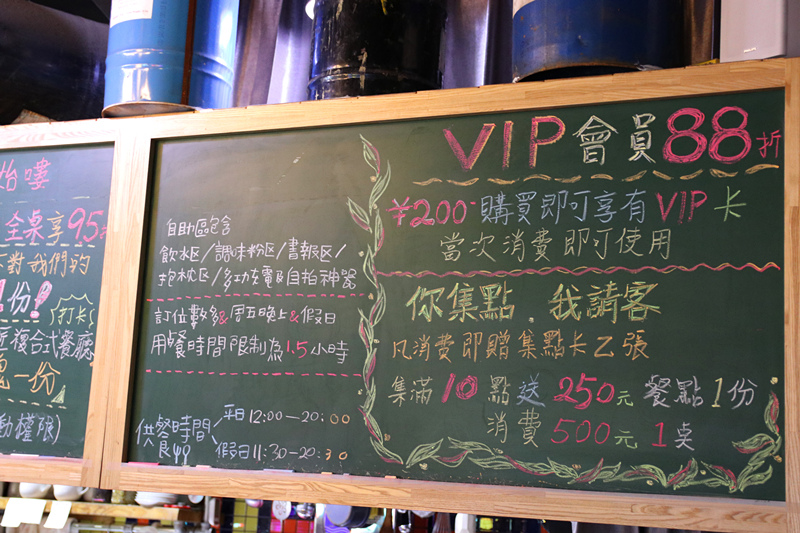 怡嘍
全桌享95
對我們的
份!
打卡
複合式餐廳
一份
動權限)
自助區包含
飲水区/調味粉区/書報区/
抱枕区/多功充電及自拍神器
訂位數多&周五晚上&假日
用餐時間限制為1.5小時
供餐時間
平日12:00—20:00
假日11:30—20:30
VIP會員88折
¥200-購買即可享有VIP卡
當次消費即可使用
你集點.我請客
凡消費即贈集點卡乙張
集滿10點送250元餐點1份
消費500元1桌